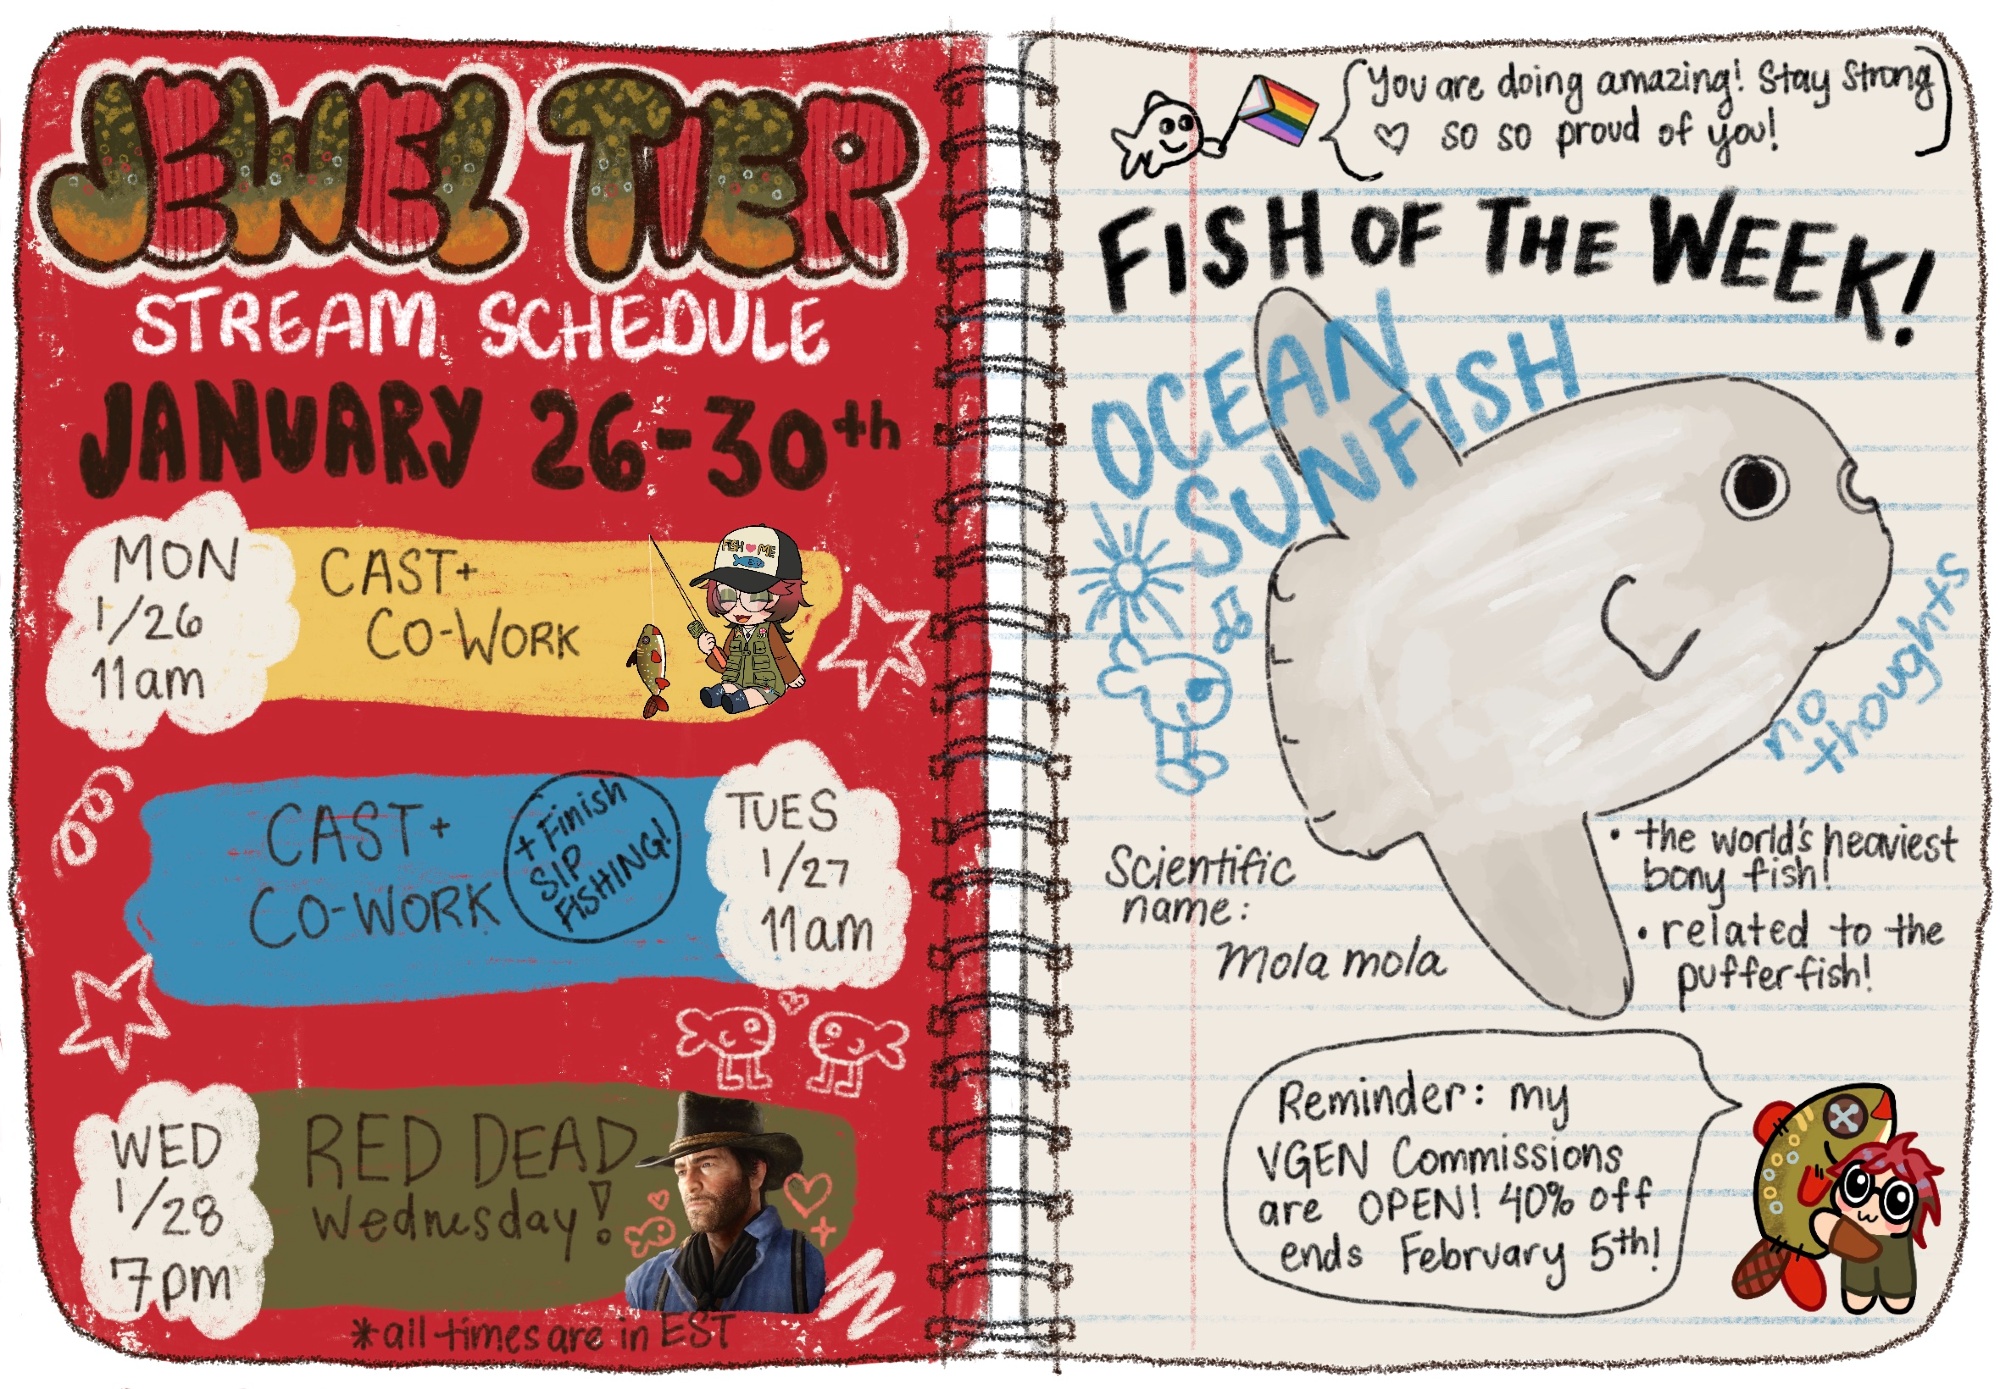 JEWEL TIER
STREAM SCHEDULE
JANUARY 26-30th
MON
1/26
11am
CAST+
CO-WORK
FISH ME
CAST+
CO-WORK
+ Finish
SIP
FISHING!
TUES
1/27
11am
WED
1/28
7pm
RED DEAD
Wednesday!
*all times are in EST
You are doing amazing! Stay Strong
♡ so so proud of you!
FISH OF THE WEEK!
OCEAN
SUNFISH
no
thoughts
Scientific
name:
Mola mola
• the world's heaviest
bony fish!
• related to the
pufferfish!
Reminder: my
VGEN Commissions
are OPEN! 40% off
ends February 5th!